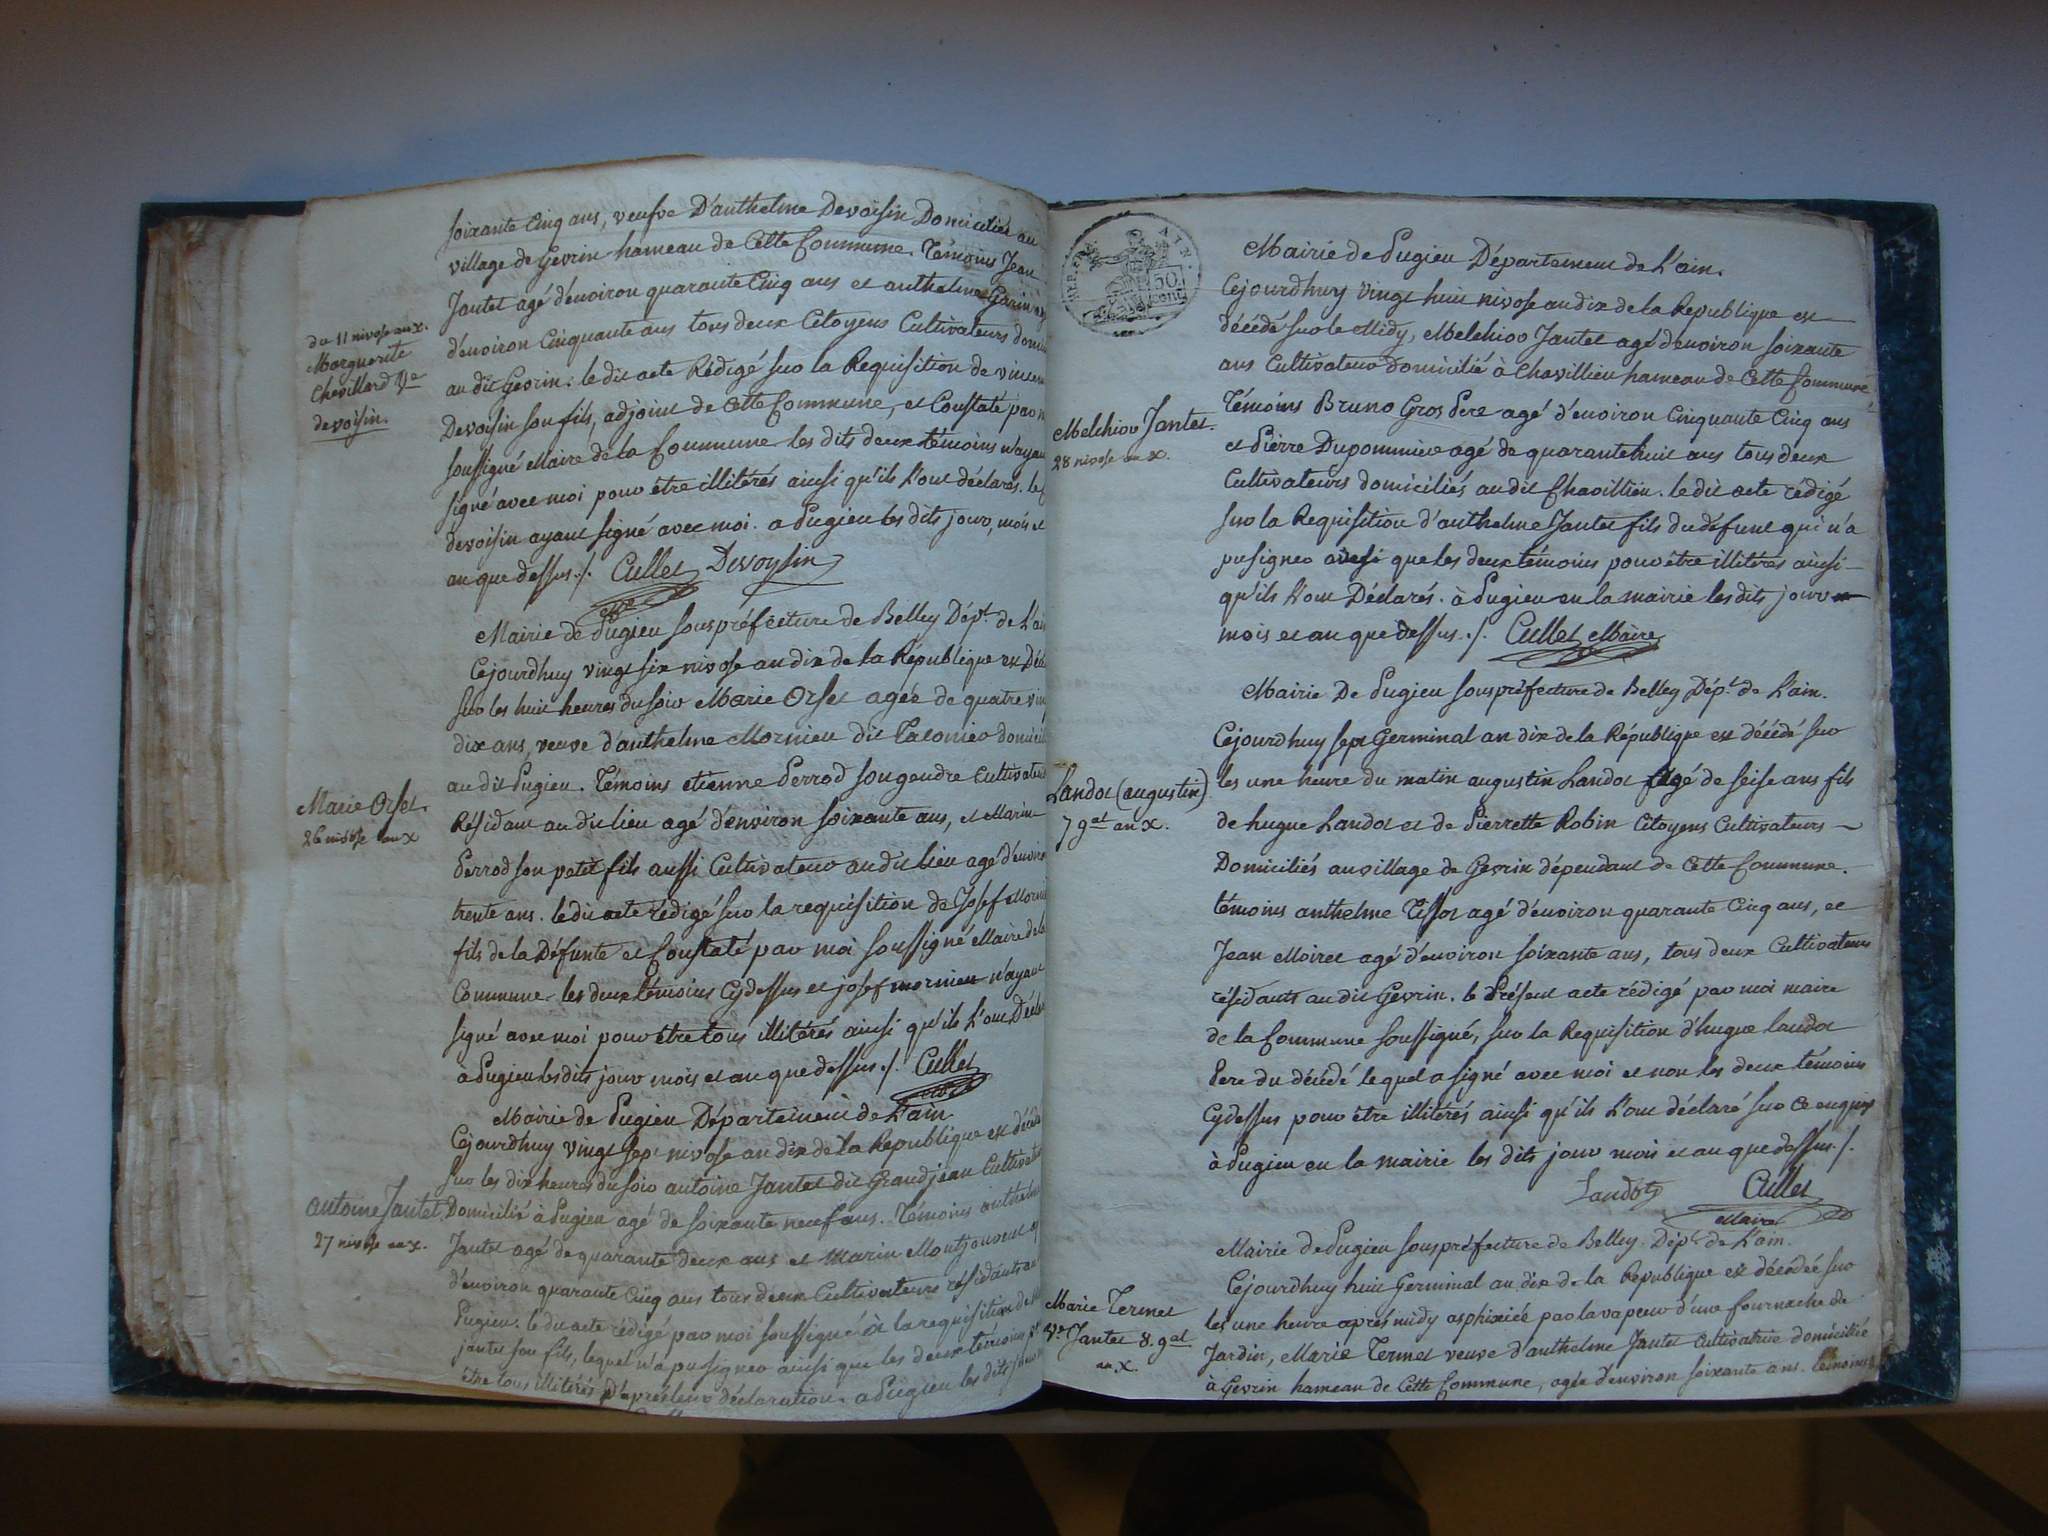 soixante Cinq ans, veufve D'anthelme Devoisin Domiciliée au
village de Gevrin hameau de Cette Commune. Témoins Jean
Jantet agé d'environ quarante Cinq ans et anthelme Garin
d'environ Cinquante ans tous deux Citoyens Cultivateurs
au dit Gevrin. le dit acte Rédigé sur la Requisition de
Devoisin son fils, adjoint de Cette Commune, et Constaté par
soussigné Maire de la Commune les dits deux témoins
signé avec moi pour être illitérés ainsi qu'ils l'ont déclarés. le
devoisin ayant signé avec moi. a Pugieu les dits jour, mois et
an que dessus ./. Cullet Devoysin
du 11 nivose an x.
Marguerite
Chevillard Ve
devoisin.
Mairie de Pugieu souspréfecture de Belley Dépt. de L'ain
Cejourdhuy vingt six nivose an dix de la République est
sur les huit heures du soir Marie Orset agée de quatre
dix ans, veuve d'anthelme Mornieu dit
au dit Pugieu. Témoins etienne Perrod son gendre Cultivateur
Résidant au du lieu agé d'environ soixante ans, et Marin
Perrod son petit fils aussi Cultivateur au dit lieu agé
trente ans. le dit acte rédigé sur la requisition de Josef
fils de la Défunte et Constaté par moi soussigné Maire de la
Commune. les deux témoins Cydessus et josef mornieu n'ayant
signé avec moi pour être tous illitérés ainsi qu'ils l'ont
à Pugieu les dits jour mois et an que dessus ./. Cullet
Marie Orset.
26 nivose an x
Mairie de Pugieu Département de L'ain
Cejourdhuy vingt sept nivose an dix de la République est
sur les dix heures du soir antoine Jantet dit Grandjean
Domicilié à Pugieu agé de soixante neuf ans. Témoins
Jantet agé de quarante deux ans et marin
d'environ quarante Cinq ans tous deux Cultivateurs résidants
Pugieu. le dit acte rédigé par moi soussigné à la requisition de
jantet son fils, lequel n'a pu signer ainsi que les deux témoins
être tous illitérés d'après leur déclaration. a Pugieu les dits
antoine Jantet.
27 nivose an x.
REP. FRA. AIN
50 cent
Mairie de Pugieu Département de L'ain.
Cejourdhuy vingt huit nivose an dix de la Republique est
décédé sur le Midy, Melchior Jantet agé d'environ soixante
ans Cultivateur domicilié à Chavillieu hameau de Cette Commune
Témoins Bruno Gros Pere agé d'environ Cinquante Cinq ans
et Pierre Dupommier agé de quarante huit ans tous deux
Cultivateurs domiciliés au dit Chavillieu. le dit acte rédigé
sur la Requisition d'anthelme Jantet fils du défunt qui n'a
pu signer que les deux témoins pour être illiterés ainsi
qu'ils l'ont Déclarés. à Pugieu en la mairie les dits jour
mois et an que dessus ./. Cullet Maire
Melchior Jantet.
28 nivose an x.
Mairie De Pugieu souspréfecture de Belley Dépt. de L'ain.
Cejourdhuy sept Germinal an dix de la République est décédé sur
les une heure du matin augustin Landot agé de seise ans fils
de hugue Landot et de Pierrette Robin Citoyens Cultivateurs
Domiciliés au village de Gevrin dépendant de Cette Commune.
témoins anthelme Tissot agé d'environ quarante Cinq ans, et
Jean Moiret agé d'environ soixante ans, tous deux Cultivateurs
résidants au dit Gevrin. le Présent acte rédigé par moi maire
de la Commune soussigné, sur la Requisition d'hugue landot
Pere du décédé lequel a signé avec moi et non les deux témoins
Cydessus pour être illitérés ainsi qu'ils l'ont déclaré sur Ce enquis
à Pugieu en la mairie les dits jour mois et an que dessus ./.
Cullet
Maire
Landot (augustin)
7 gal an x.
Mairie de Pugieu souspréfecture de Belley. Dépt. de L'ain.
Cejourdhuy huit Germinal an dix de la République est décédée sur
les une heure après midy asphixiée par la vapeur d'une fournache de
Jardin, Marie Termet veuve d'anthelme Jantet Cultivatrice domiciliée
à Gevrin hameau de Cette Commune, agée d'environ soixante ans. témoins
Marie Termet
Ve Jantet 8. gal
an x.